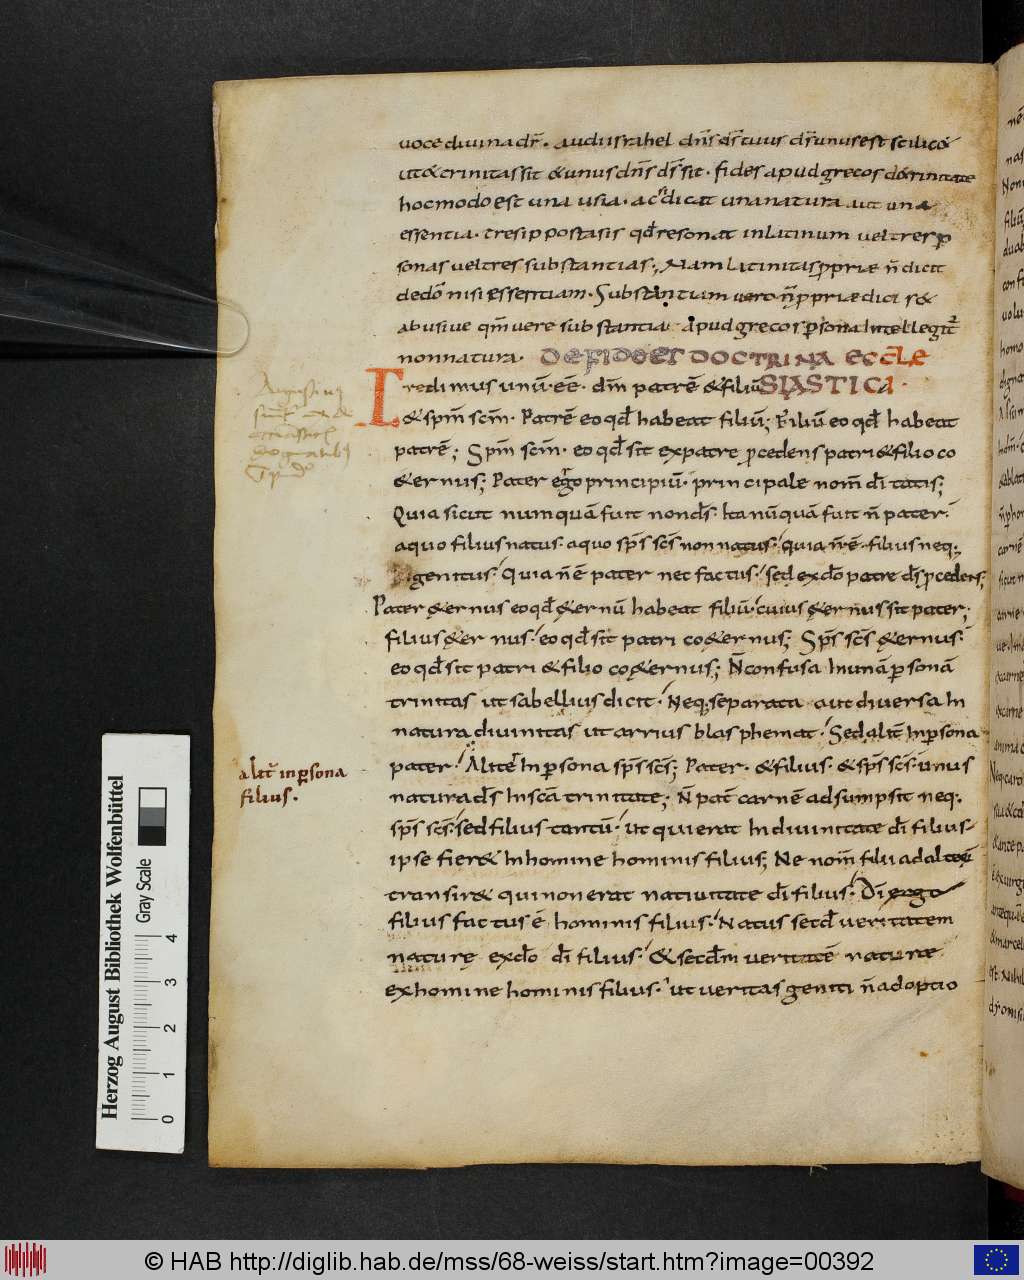 uoce diuina dr̄. audi israhel dn̄s ds̄ tuus ds̄ unus est scilic&
ut & trinitas sit & unus dn̄s ds̄ sit. fides apud grecos de trinitate
hoc modo est una usia. ac si dicat una natura aut una
essentia. tres ippostasis qd̄ resonat in latinum uel tres p̱
sonas uel tres substantias; Nam latinitas p̱priæ n̄ dicit
de dō nisi essentiam. Substantiam uero n̄ p̱priæ dici s&
abusiue qm̄ uere substantia apud grecos p̱sona intellegit᷑
non natura. DE FIDE ET DOCTRINA ECCLE
SIASTICA.
Credimus unū eē. dm̄ patrē & filiū
& sp̄m sc̄m. Patrē eo qd̄ habeat filiū; Filiū eo qd̄ habeat
patrē; Sp̄m sc̄m. eo qd̄ sit ex patre p̱cedens patri & filio co
&ernus; Pater ergo principiū. principale nom̄ diuitatis;
Quia sicut numquā fuit non ds̄. Ita nūquā fuit n̄ pater.
a quo filius natus. a quo sp̄s sc̄s non natus. quia n̄ ē. filius neq;
genitus. Quia n̄ ē pater nec factus. sed ex dō patre ds̄ p̱cedens;
Pater &ernus eo qd̄ &ernū habeat filiū. cuius &ernus sit pater;
filius &ernus. eo qd̄ sit patri co&ernus; Sp̄s sc̄s &ernus.
eo qd̄ sit patri & filio co&ernus; N̄ confusa in unā p̱sonā
trinitas ut sabellius dicit. Neq; separata aut diuersa in
natura diuinitas ut arrius blasphemat. Sed alit̄ in p̱sona
pater. Aliter in p̱sona sp̄s sc̄s; Pater. & filius. & sp̄s sc̄s. unus
natura ds̄ in sc̄a trinitate; N̄ pat̄ carnē adsumpsit neq;
sp̄s sc̄s. sed filius tantū. ut qui erat in diuinitate dī filius
ipse fier& in homine hominis filius; Ne nom̄ filii ad alterū
transir& qui non erat natiuitate dī filius. Dī ergo
filius factus ē hominis filius. Natus secd̄ ueritatem
naturę ex dō dī filius. & secd̄m ueritatē naturæ
ex homine hominis filius. ut ueritas geniti n̄ adoptio
alit̄ in p̱sona
filius.
Herzog August Bibliothek Wolfenbüttel
Gray Scale
0 1 2 3 4
© HAB http://diglib.hab.de/mss/68-weiss/start.htm?image=00392